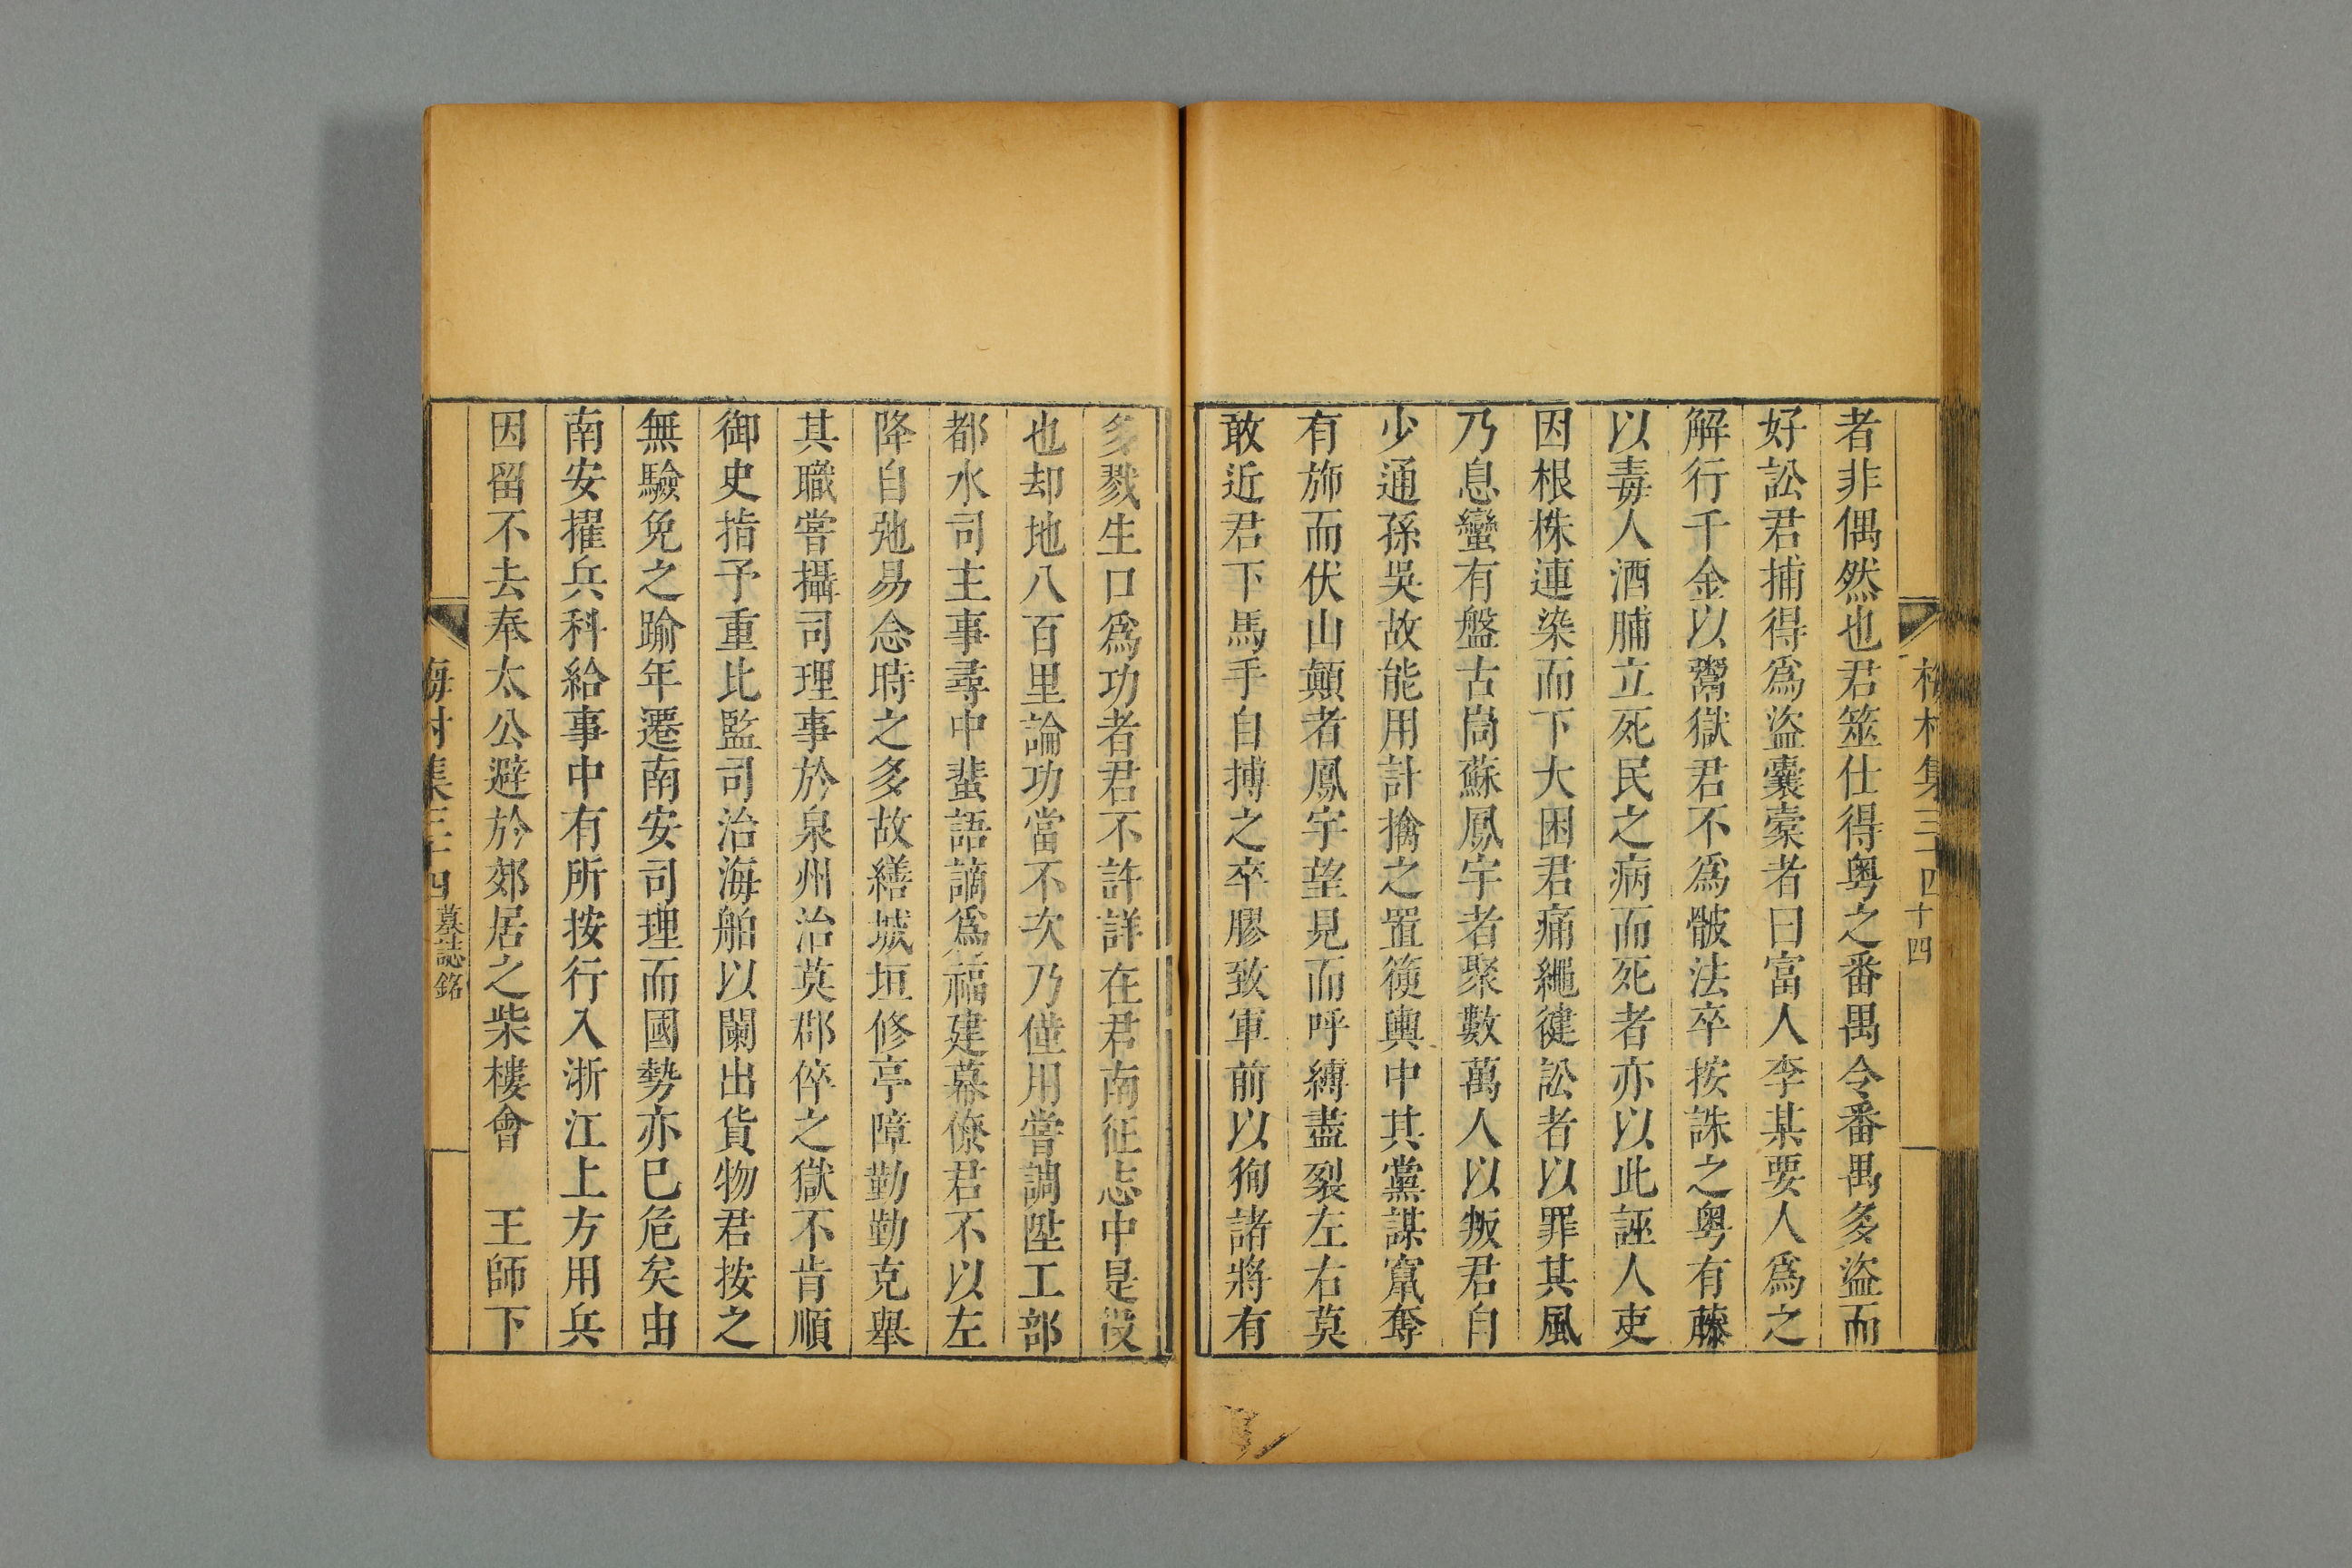 梅村集三十四 十四
者非偶然也君筮仕得粤之番禺令番禺多盜而
好訟君捕得爲盜囊橐者曰富人李某要人爲之
解行千金以鬻獄君不爲骳法卒按誅之粤有藤
以毒人酒脯立死民之病而死者亦以此誣人吏
因根株連染而下大困君痛繩徤訟者以罪其風
乃息蠻有盤古峝蘇鳳宇者聚數萬人以叛君自
少通孫吳故能用計擒之置篊輿中其黨謀竄奪
有斾而伏山顛者鳳宇望見而呼縛盡裂左右莫
敢近君下馬手自搏之卒膠致軍前以狥諸將有
多戮生口爲功者君不許詳在君南征志中是役
也却地八百里論功當不次乃僅用嘗調陞工部
都水司主事尋中蜚語謫爲福建幕僚君不以左
降自弛易念時之多故繕城垣修亭障勤勤克舉
其職嘗攝司理事於泉州治英郡倅之獄不肯順
御史指予重比監司治海舶以闌出貨物君按之
無驗免之踰年遷南安司理而國勢亦巳危矣由
南安擢兵科給事中有所按行入浙江上方用兵
因留不去奉太公避於郊居之柴樓會 王師下
梅村集三十四 墓誌銘